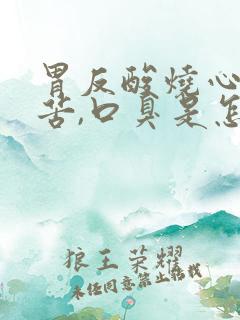 胃反酸燒心
苦,口臭是怎
狼王荣耀
未经同意禁止转载